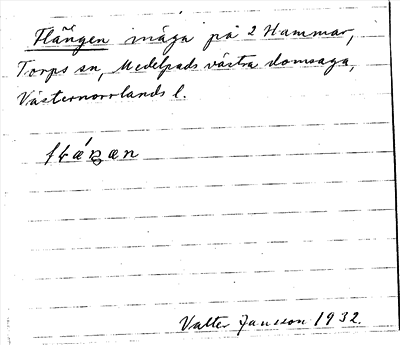 Flängen inäga på 2 Hammar,
Torps sn, Medelpads västra domsaga,
Västernorrlands l.
Valter Jansson 1932.